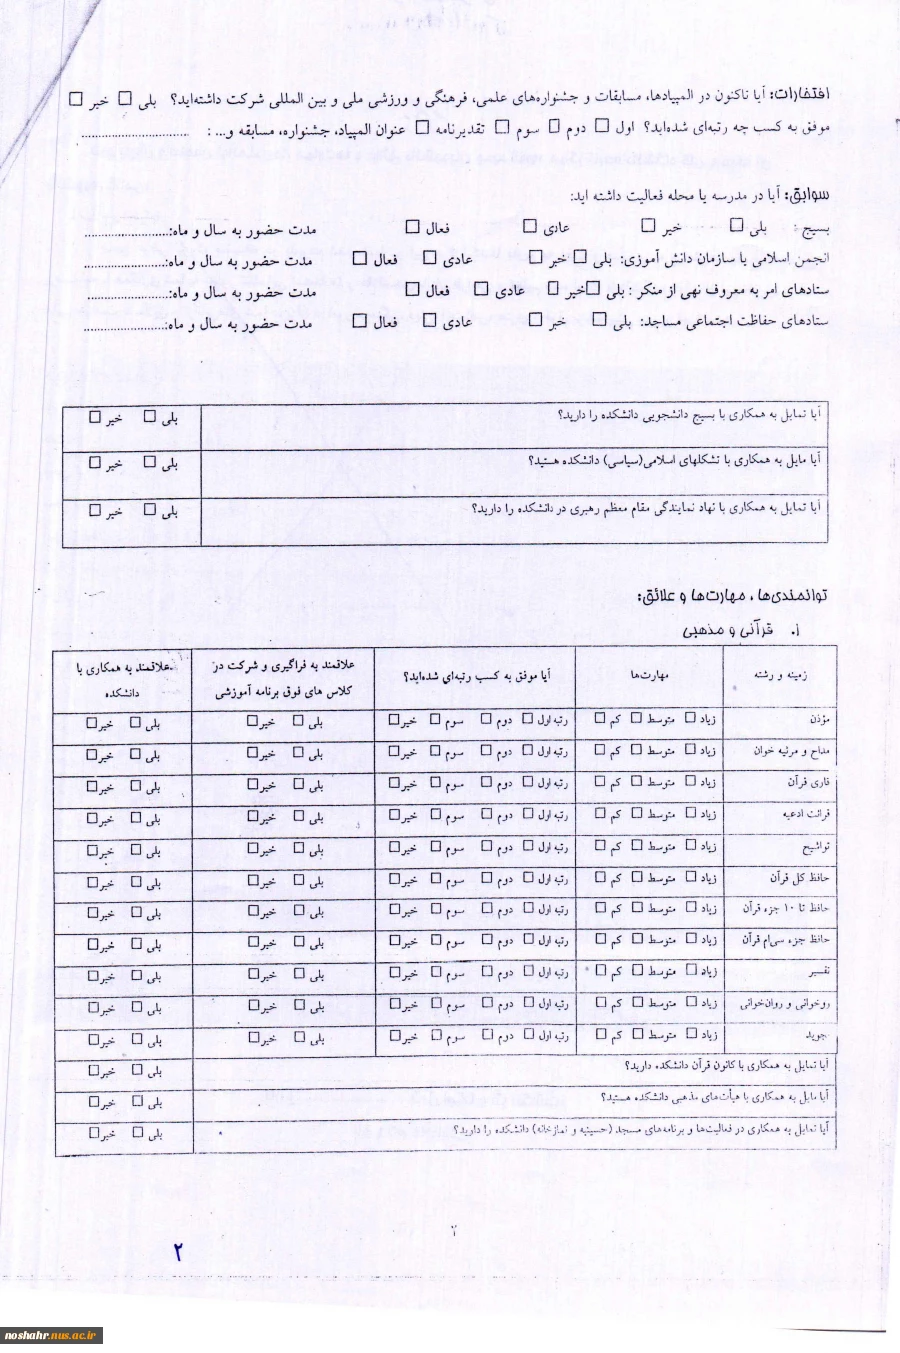 افتخارات: آیا تاکنون در المپیادها، مسابقات و جشنواره‌های علمی، فرهنگی و ورزشی ملی و بین المللی شرکت داشته‌اید؟ بلی □ خیر □
موفق به کسب چه رتبه‌ای شده‌اید؟ اول □ دوم □ سوم □ تقدیرنامه □ عنوان المپیاد، جشنواره، مسابقه و... : ..............................
سوابق: آیا در مدرسه یا محله فعالیت داشته اید:
بسیج: بلی □ خیر □ عادی □ فعال □ مدت حضور به سال و ماه:......................
انجمن اسلامی یا سازمان دانش آموزی: بلی □ خیر □ عادی □ فعال □ مدت حضور به سال و ماه:......................
ستادهای امر به معروف نهی از منکر : بلی □ خیر □ عادی □ فعال □ مدت حضور به سال و ماه:......................
ستادهای حفاظت اجتماعی مساجد: بلی □ خیر □ عادی □ فعال □ مدت حضور به سال و ماه:......................
آیا تمایل به همکاری با بسیج دانشجویی دانشکده را دارید؟ بلی □ خیر □
آیا مایل به همکاری با تشکلهای اسلامی(سیاسی) دانشکده هستید؟ بلی □ خیر □
آیا تمایل به همکاری با نهاد نمایندگی مقام معظم رهبری در دانشکده را دارید؟ بلی □ خیر □
توانمندی‌ها ، مهارت‌ها و علائق:
۱. قرآنی و مذهبی
زمینه و رشته مهارت‌ها آیا موفق به کسب رتبه‌ای شده‌اید؟ علاقمند به فراگیری و شرکت در کلاس های فوق برنامه آموزشی علاقمند به همکاری با دانشکده
مؤذن زیاد □ متوسط □ کم □ رتبه اول □ دوم □ سوم □ خیر □ بلی □ خیر □ بلی □ خیر □
مداح و مرثیه خوان زیاد □ متوسط □ کم □ رتبه اول □ دوم □ سوم □ خیر □ بلی □ خیر □ بلی □ خیر □
قاری قرآن زیاد □ متوسط □ کم □ رتبه اول □ دوم □ سوم □ خیر □ بلی □ خیر □ بلی □ خیر □
قرائت ادعیه زیاد □ متوسط □ کم □ رتبه اول □ دوم □ سوم □ خیر □ بلی □ خیر □ بلی □ خیر □
تواشیح زیاد □ متوسط □ کم □ رتبه اول □ دوم □ سوم □ خیر □ بلی □ خیر □ بلی □ خیر □
حافظ کل قرآن زیاد □ متوسط □ کم □ رتبه اول □ دوم □ سوم □ خیر □ بلی □ خیر □ بلی □ خیر □
حافظ تا ۱۰ جزء قرآن زیاد □ متوسط □ کم □ رتبه اول □ دوم □ سوم □ خیر □ بلی □ خیر □ بلی □ خیر □
حافظ جزء سی‌ام قرآن زیاد □ متوسط □ کم □ رتبه اول □ دوم □ سوم □ خیر □ بلی □ خیر □ بلی □ خیر □
تفسیر زیاد □ متوسط □ کم □ رتبه اول □ دوم □ سوم □ خیر □ بلی □ خیر □ بلی □ خیر □
روخوانی و روان‌خوانی زیاد □ متوسط □ کم □ رتبه اول □ دوم □ سوم □ خیر □ بلی □ خیر □ بلی □ خیر □
تجوید زیاد □ متوسط □ کم □ رتبه اول □ دوم □ سوم □ خیر □ بلی □ خیر □ بلی □ خیر □
آیا تمایل به همکاری با کانون قرآن دانشکده دارید؟ بلی □ خیر □
آیا مایل به همکاری با هیأت‌های مذهبی دانشکده هستید؟ بلی □ خیر □
آیا تمایل به همکاری در فعالیت‌ها و برنامه‌های مسجد (حسینیه و نمازخانه) دانشکده را دارید؟ بلی □ خیر □
۲
noshahr.nus.ac.ir